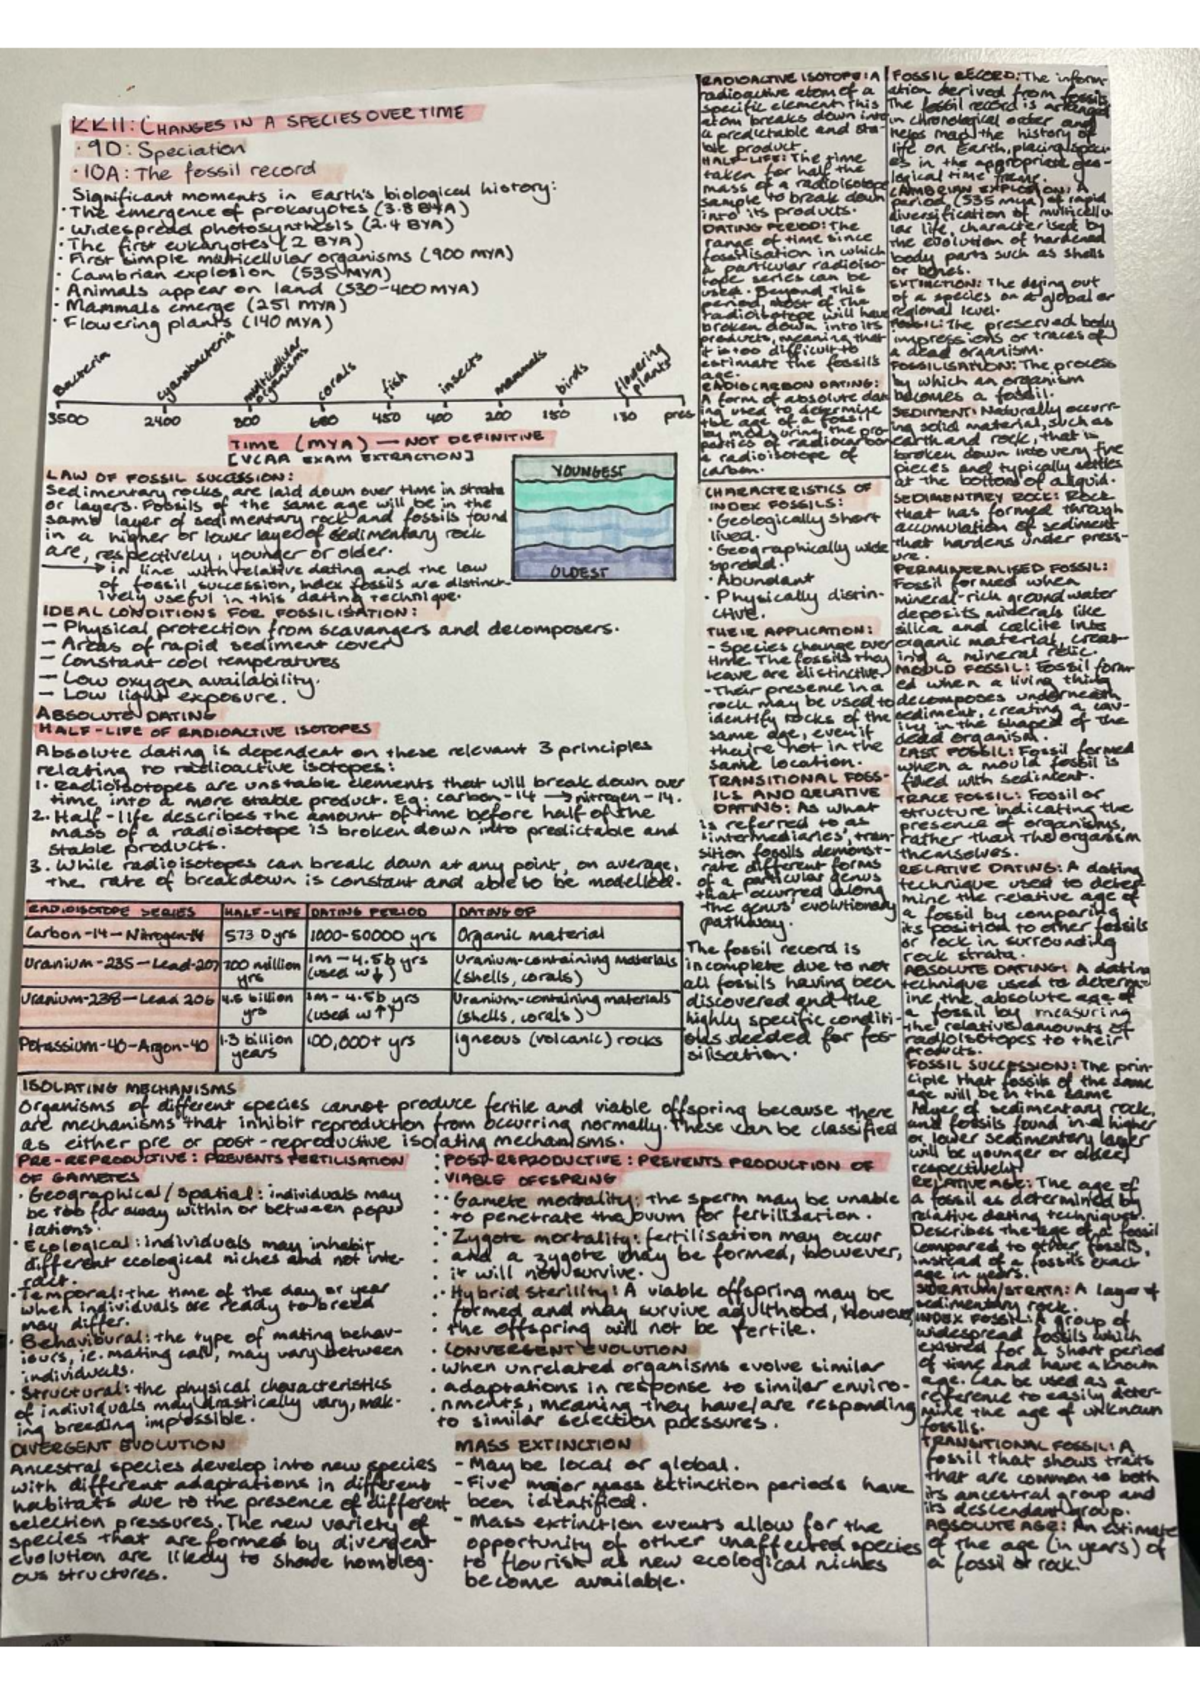 KK11: CHANGES IN A SPECIES OVER TIME
· 9D: Speciation
· 10A: The fossil record
Significant moments in Earth's biological history:
· The emergence of prokaryotes (3.8 BYA)
· Widespread photosynthesis (2.4 BYA)
· The first eukaryotes (2 BYA)
· First simple multicellular organisms (900 MYA)
· Cambrian explosion (535 MYA)
· Animals appear on land (530-400 MYA)
· Mammals emerge (251 MYA)
· Flowering plants (140 MYA)
Bacteria cyanobacteria multicellular organisms corals fish insects mammals birds flowering plants
3500 2400 800 600 450 400 200 150 130 pres
TIME (MYA) — NOT DEFINITIVE
[VCAA EXAM EXTRACTION]
LAW OF FOSSIL SUCCESSION:
Sedimentary rocks are laid down over time in strata
or layers. Fossils of the same age will be in the
same layer of sedimentary rock and fossils found
in a higher or lower layer of sedimentary rock
are, respectively, younger or older.
→ in line with relative dating and the law
of fossil succession, index fossils are distinct-
ively useful in this dating technique.
YOUNGEST
OLDEST
IDEAL CONDITIONS FOR FOSSILISATION:
— Physical protection from scavengers and decomposers.
— Areas of rapid sediment cover
— Constant cool temperatures
— Low oxygen availability.
— Low light exposure.
ABSOLUTE DATING
HALF-LIFE OF RADIOACTIVE ISOTOPES
Absolute dating is dependent on these relevant 3 principles
relating to radioactive isotopes:
1. Radioisotopes are unstable elements that will break down over
time into a more stable product. Eg: carbon-14 → nitrogen-14.
2. Half-life describes the amount of time before half of the
mass of a radioisotope is broken down into predictable and
stable products.
3. While radioisotopes can break down at any point, on average,
the rate of breakdown is constant and able to be modelled.
RADIOISOTOPE SERIES HALF-LIFE DATING PERIOD DATING OF
Carbon-14—Nitrogen-14 5730 yrs 1000-50000 yrs Organic material
Uranium-235—Lead-207 700 million yrs 1m-4.5b yrs (used w↓) Uranium-containing materials (shells, corals)
Uranium-238—Lead 206 4.5 billion yrs 1m-4.5b yrs (used w↑) Uranium-containing materials (shells, corals)
Potassium-40-Argon-40 1.3 billion years 100,000+ yrs Igneous (volcanic) rocks
ISOLATING MECHANISMS
Organisms of different species cannot produce fertile and viable offspring because there
are mechanisms that inhibit reproduction from occurring normally. These can be classified
as either pre or post-reproductive isolating mechanisms.
PRE-REPRODUCTIVE: PREVENTS FERTILISATION
OF GAMETES
· Geographical/spatial: individuals may
be too far away within or between popu
lations.
· Ecological: individuals may inhabit
different ecological niches and not inte-
ract.
· Temporal: the time of the day or year
when individuals are ready to breed
may differ.
· Behavioural: the type of mating behav-
iours, ie. mating call, may vary between
individuals.
· Structural: the physical characteristics
of individuals may drastically vary, mak-
ing breeding impossible.
DIVERGENT EVOLUTION
Ancestral species develop into new species
with different adaptations in different
habitats due to the presence of different
selection pressures. The new variety of
species that are formed by divergent
evolution are likely to share homolog-
ous structures.
POST-REPRODUCTIVE: PREVENTS PRODUCTION OF
VIABLE OFFSPRING
· Gamete mortality: the sperm may be unable
to penetrate the ovum for fertilisation.
· Zygote mortality: fertilisation may occur
and a zygote may be formed, however,
it will not survive.
· Hybrid sterility: A viable offspring may be
formed and may survive adulthood, however
the offspring will not be fertile.
CONVERGENT EVOLUTION
When unrelated organisms evolve similar
adaptations in response to similar enviro-
nments, meaning they have/are responding
to similar selection pressures.
MASS EXTINCTION
- May be local or global.
- Five major mass extinction periods have
been identified.
- Mass extinction events allow for the
opportunity of other unaffected species
to flourish as new ecological niches
become available.
RADIOACTIVE ISOTOPE: A
radioactive atom of a
specific element this
atom breaks down into
a predictable and sta-
ble product.
HALF-LIFE: The time
taken for half the
mass of a radioisotope
sample to break down
into its products.
DATING PERIOD: The
range of time since
fossilisation in which
a particular radioiso-
tope series can be
used. Beyond this
period, most of the
radioisotope will have
broken down into its
products, meaning that
it is too difficult to
estimate the fossil's
age.
RADIOCARBON DATING:
A form of absolute dat
ing used to determine
the age of a fossil
by measuring the pro-
perties of radiocarbon
a radioisotope of
carbon.
CHARACTERISTICS OF
INDEX FOSSILS:
· Geologically short
lived.
· Geographically wide
spread.
· Abundant
· Physically distin-
ctive.
THEIR APPLICATION:
- Species change over
time. The fossils they
leave are distinctive.
- Their presence in a
rock may be used to
identify rocks of the
same age, even if
they're not in the
same location.
TRANSITIONAL FOSS-
ILS AND RELATIVE
DATING: As what
is referred to as
'intermediaries', tran-
sition fossils demonst-
rate different forms
of a particular genus
that occurred along
the genus' evolutionary
pathway.
The fossil record is
incomplete due to not
all fossils having been
discovered and the
highly specific conditi-
ons needed for fos-
silisation.
FOSSIL RECORD: The inform-
ation derived from fossils
The fossil record is arranged
in chronological order and
helps map the history of
life on Earth, placing speci-
es in the appropriate geo-
logical time frame.
CAMBRIAN EXPLOSION: A
period (535 mya) of rapid
diversification of multicellu-
lar life, characterised by
the evolution of hardened
body parts such as shells
or bones.
EXTINCTION: The dying out
of a species on a global or
regional level.
FOSSIL: The preserved body
impressions or traces of
a dead organism.
FOSSILISATION: The process
by which an organism
becomes a fossil.
SEDIMENT: Naturally occurr-
ing solid material, such as
earth and rock, that is
broken down into very fine
pieces and typically settles
at the bottom of a liquid.
SEDIMENTARY ROCK: Rock
that has formed through
accumulation of sediment
that hardens under press-
ure.
PERMINERALISED FOSSIL:
Fossil formed when
mineral-rich ground water
deposits minerals like
silica and calcite into
organic material, creat-
ing a mineral relic.
MOULD FOSSIL: Fossil form-
ed when a living thing
decomposes underneath
sediment, creating a cav-
ity in the shape of the
dead organism.
CAST FOSSIL: Fossil formed
when a mould fossil is
filled with sediment.
TRACE FOSSIL: Fossil or
structure indicating the
presence of organisms,
rather than the organism
themselves.
RELATIVE DATING: A dating
technique used to deter-
mine the relative age of
a fossil by comparing
its position to other fossils
or rock in surrounding
rock strata.
ABSOLUTE DATING: A dating
technique used to determ-
ine the absolute age of
a fossil by measuring
the relative amounts of
radioisotopes to their
products.
FOSSIL SUCCESSION: The prin-
ciple that fossils of the same
age will be in the same
layer of sedimentary rock,
and fossils found in a higher
or lower sedimentary layer
will be younger or older,
respectively.
RELATIVE AGE: The age of
a fossil as determined by
relative dating techniques.
Describes the age of a fossil
compared to other fossils,
instead of a fossil's exact
age in years.
STRATUM/STRATA: A layer of
sedimentary rock.
INDEX FOSSIL: A group of
widespread fossils which
existed for a short period
of time and have a known
age. Can be used as a
reference to easily deter-
mine the age of unknown
fossils.
TRANSITIONAL FOSSIL: A
fossil that shows traits
that are common to both
its ancestral group and
its descendant group.
ABSOLUTE AGE: An estimate
of the age (in years) of
a fossil or rock.